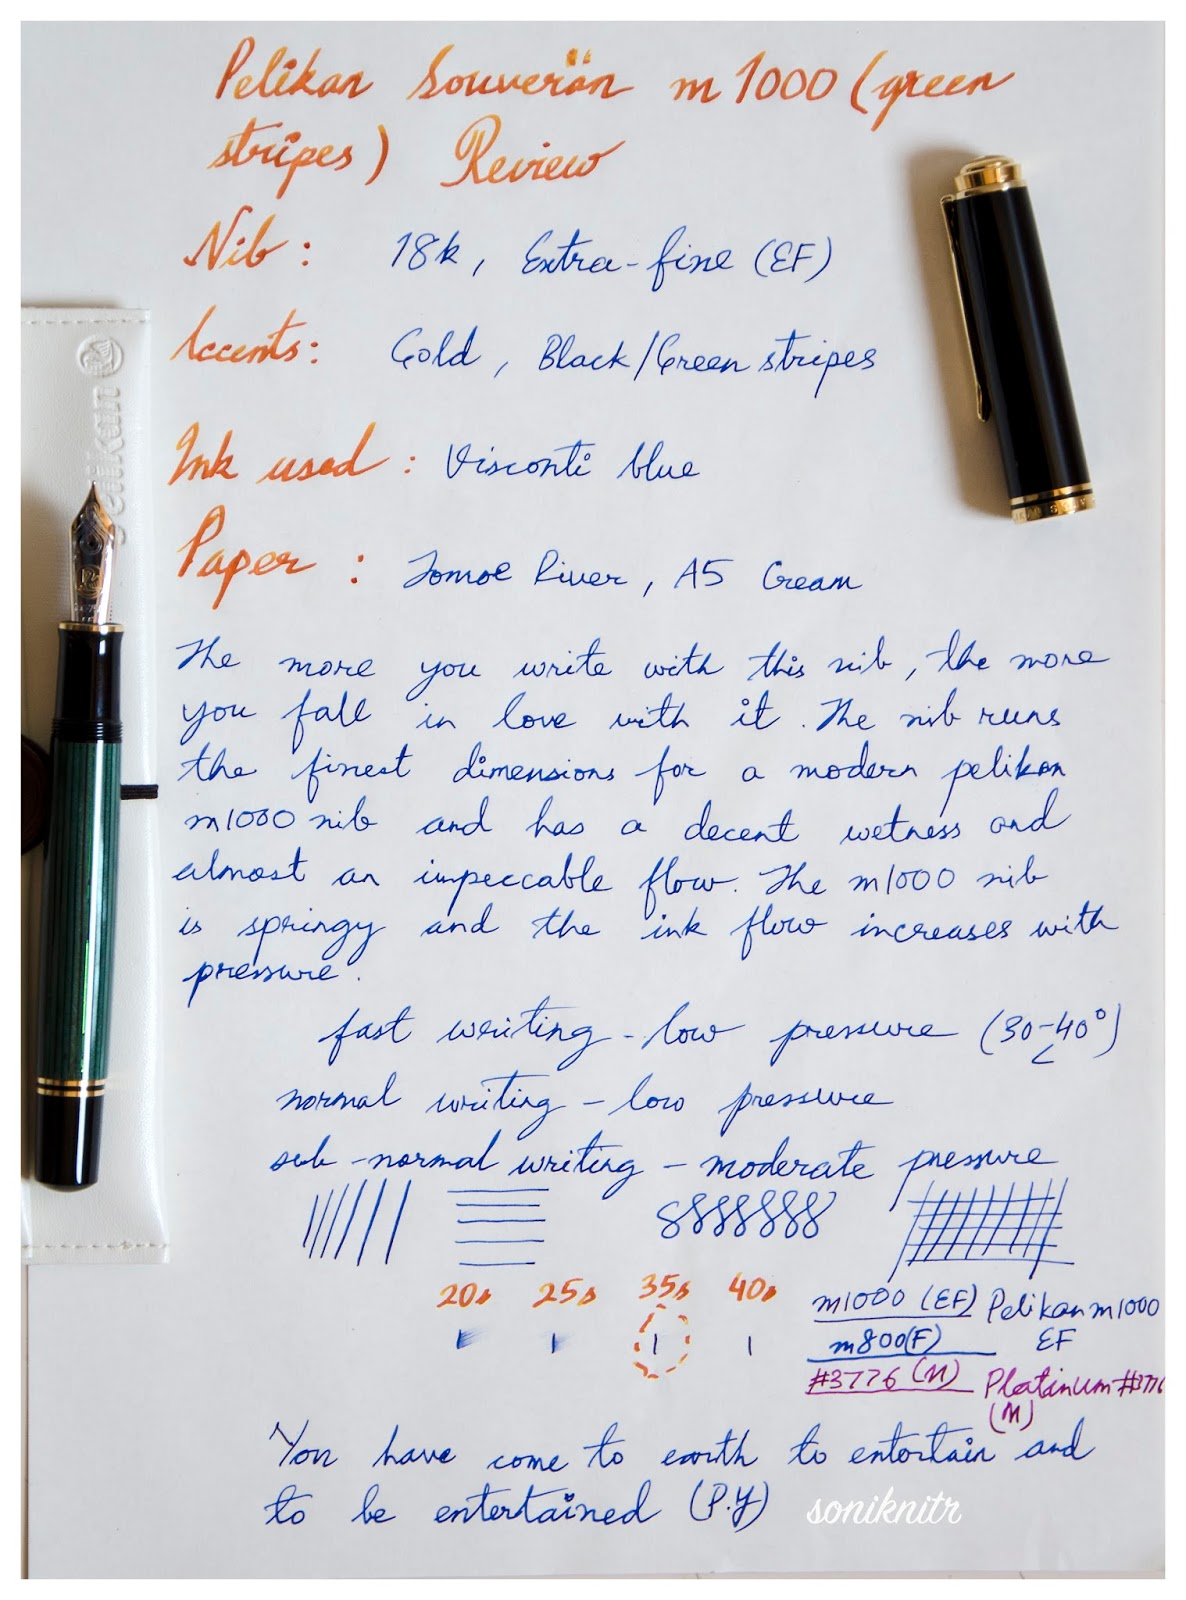 Pelikan Souverän m1000 (green
stripes) Review
Nib: 18k, Extra-fine (EF)
Accents: Gold, Black/Green stripes
Ink used: Visconti blue
Paper: Tomoe River, A5 Cream
The more you write with this nib, the more
you fall in love with it. The nib runs
the finest dimensions for a modern pelikan
m1000 nib and has a decent wetness and
almost an impeccable flow. The m1000 nib
is springy and the ink flow increases with
pressure.
fast writing - low pressure (30-40°)
normal writing - low pressure
sub-normal writing - moderate pressure
20s 25s 35s 40s
m1000 (EF) Pelikan m1000
m800(F) EF
#3776 (M) Platinum #3776
(M)
You have come to earth to entertain and
to be entertained (P.Y)
soniknitr
Pelikan